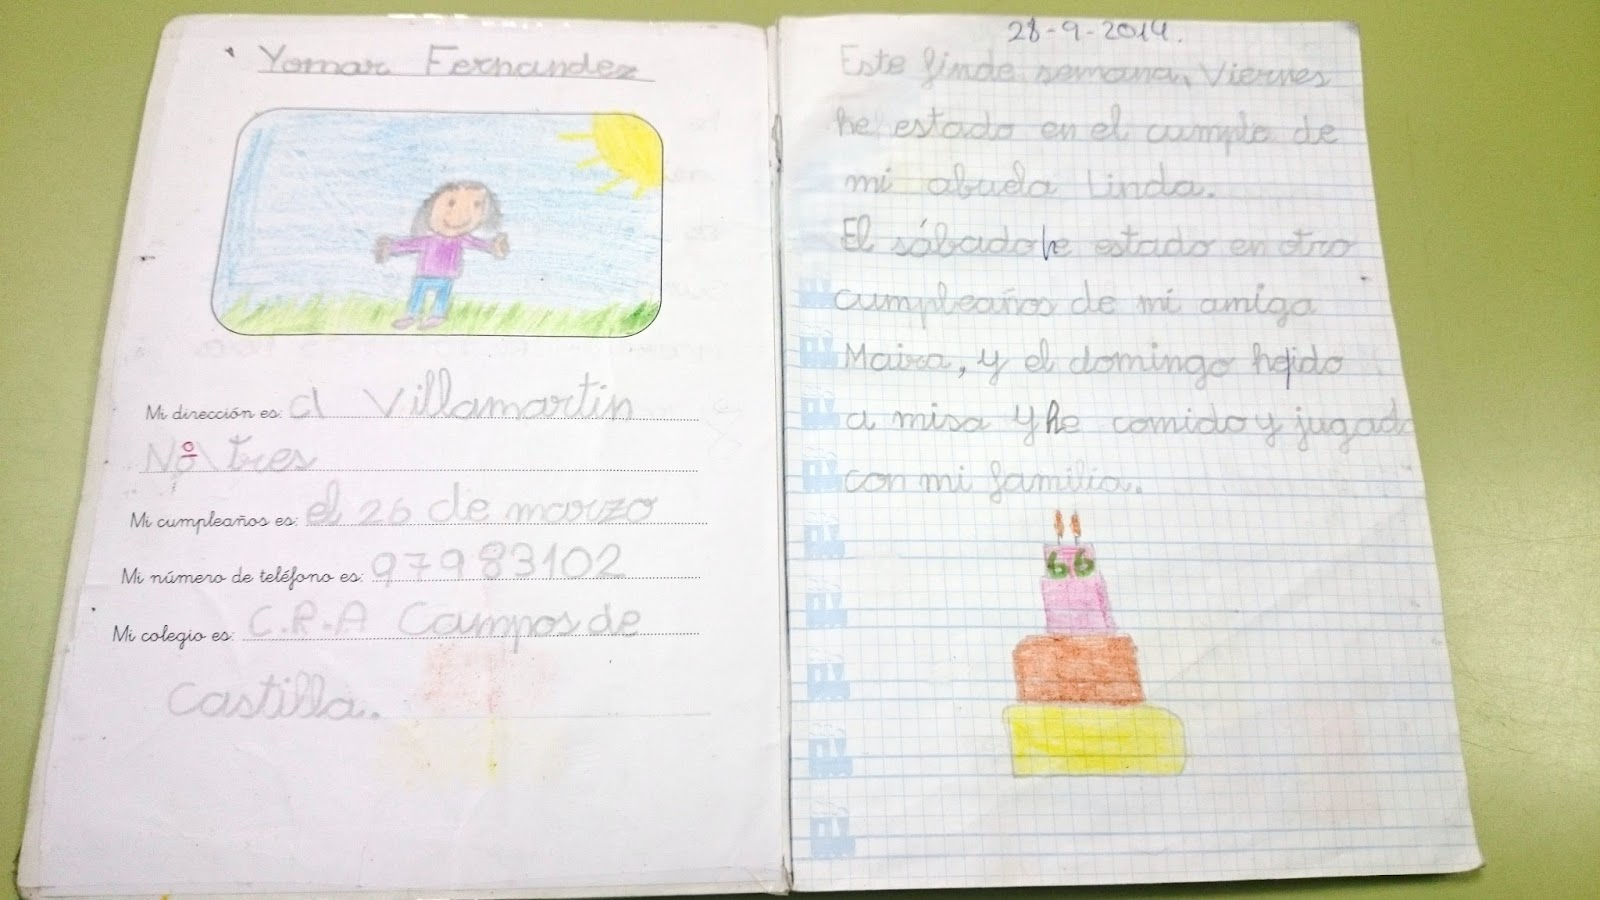 Yomar Fernandez
Mi dirección es: cl Villamartin
Nº tres
Mi cumpleaños es: el 26 de marzo
Mi número de teléfono es: 97983102
Mi colegio es: C.R.A Campos de
Castilla.
28-9-2014.
Este finde semana, Viernes
he estado en el cumple de
mi abuela Linda.
El sábado he estado en otro
cumpleaños de mi amiga
Maira, y el domingo he ido
a misa y he comido y jugado
con mi familia.
66